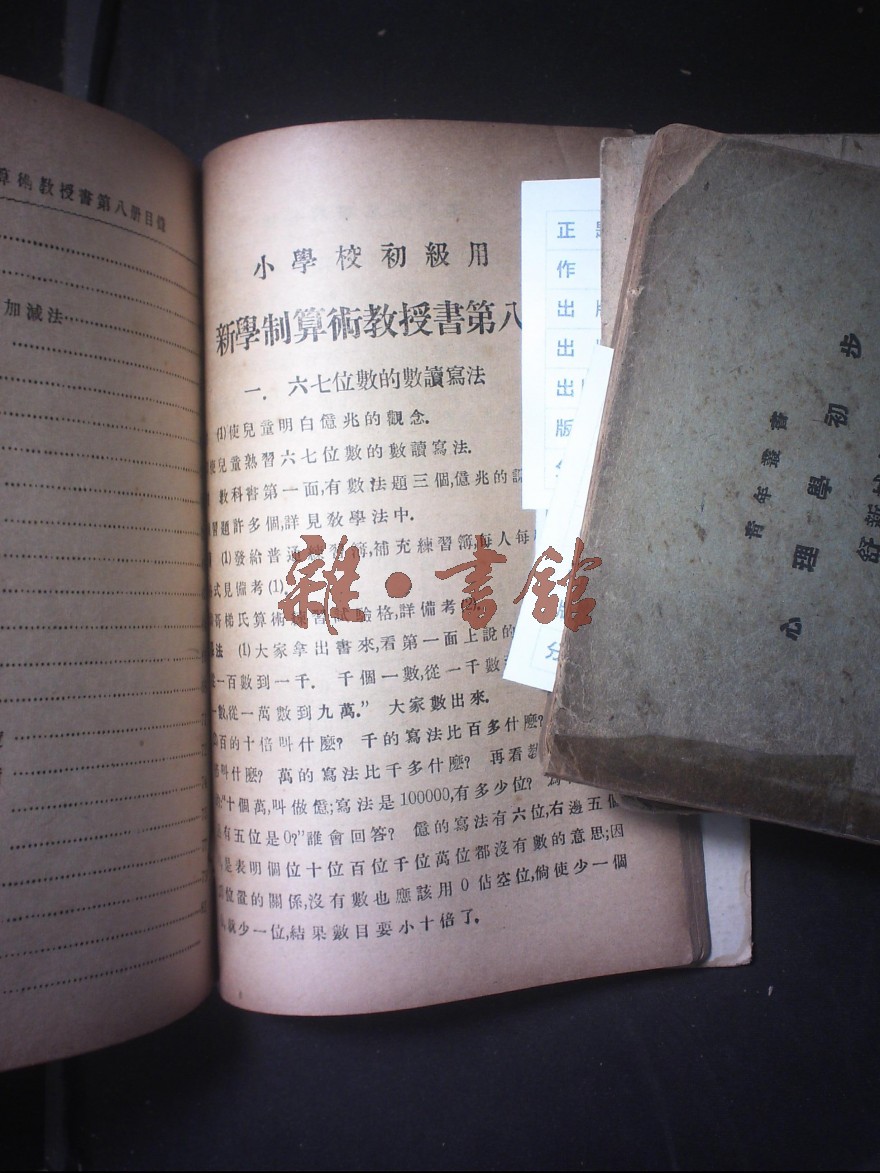 算術教授書第八册目錄
加減法
小學校初級用
新學制算術教授書第八
一．六七位數的數讀寫法
⑴使兒童明白億兆的觀念．
使兒童熟習六七位數的數讀寫法．
教科書第一面,有數法題三個,億兆的
習題許多個,詳見敎學法中．
⑴發給普通練習簿,補充練習簿,每人每
式見備考⑴．
梯氏算術練習試驗格,詳備考⑵．
法 ⑴大家拿出書來,看第一面上說的
一百數到一千． 千個一數,從一千數
一數,從一萬數到九萬.” 大家數出來．
百的十倍叫什麼? 千的寫法比百多什麼?
叫什麼? 萬的寫法比千多什麼? 再看
“十個萬,叫做億;寫法是100000,有多少位?
有五位是0?”誰會回答? 億的寫法有六位,右邊五個
是表明個位十位百位千位萬位都沒有數的意思;因
位置的關係,沒有數也應該用0佔空位,倘使少一個
就少一位,結果數目要小十倍了．
雜·書館
正
作
出 版
出
出
版
分
青年叢書
心理學初步
舒新